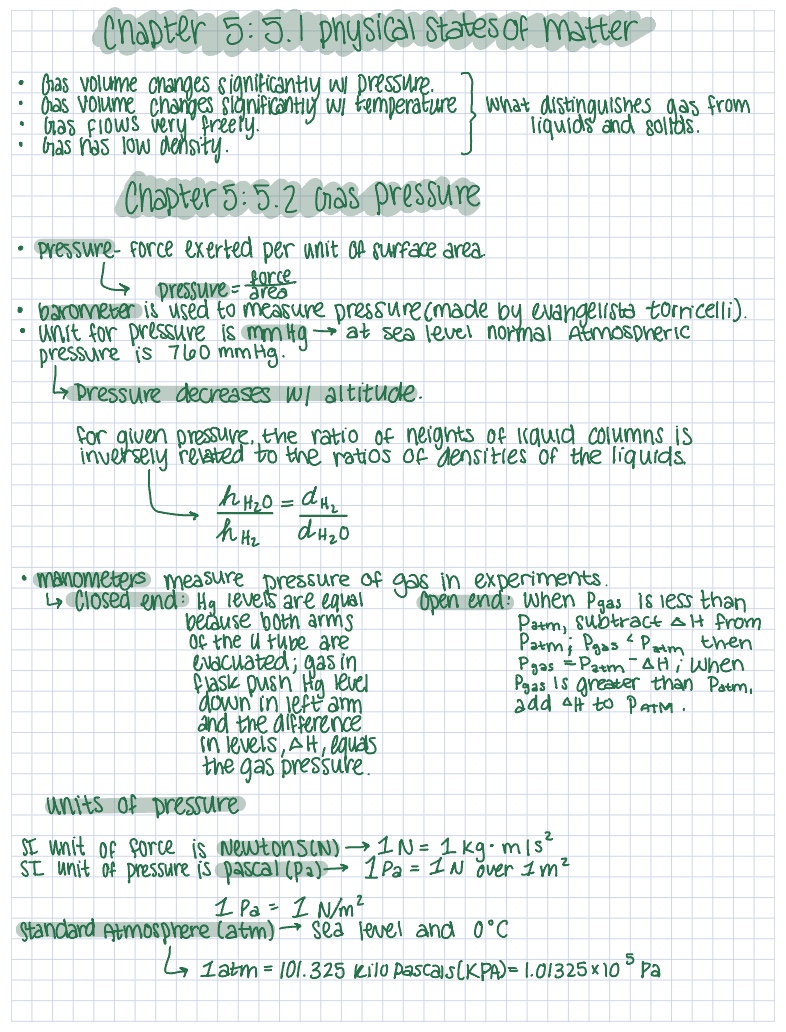 Chapter 5: 5.1 physical states of matter
• Gas volume changes significantly w/ pressure.
• Gas volume changes significantly w/ temperature
• Gas flows very freely.
• Gas has low density.
what distinguishes gas from
liquids and solids.
Chapter 5: 5.2 Gas pressure
• pressure - force exerted per unit of surface area.
pressure = force/area
• barometer is used to measure pressure (made by evangelista torricelli).
• unit for pressure is mmHg → at sea level normal Atmospheric
pressure is 760 mmHg.
↳ Pressure decreases w/ altitude.
for given pressure, the ratio of heights of liquid columns is
inversely related to the ratios of densities of the liquids.
hH₂O/hH₂ = dH₂/dH₂O
• manometers measure pressure of gas in experiments.
↳ Closed end: Hg levels are equal
because both arms
of the U tube are
evacuated; gas in
flask push Hg level
down in left arm
and the difference
in levels, ΔH, equals
the gas pressure.
Open end: When Pgas is less than
Patm, subtract ΔH from
Patm; Pgas < Patm then
Pgas = Patm - ΔH; when
Pgas is greater than Patm,
add ΔH to PATM.
units of pressure
SI unit of force is Newtons(N) → 1 N = 1 kg · m/s²
SI unit of pressure is pascal (Pa) → 1 Pa = 1 N over 1 m²
1 Pa = 1 N/m²
Standard Atmosphere (atm) → sea level and 0°C
↳ 1 atm = 101.325 kilo pascals (KPA) = 1.01325 × 10⁵ Pa